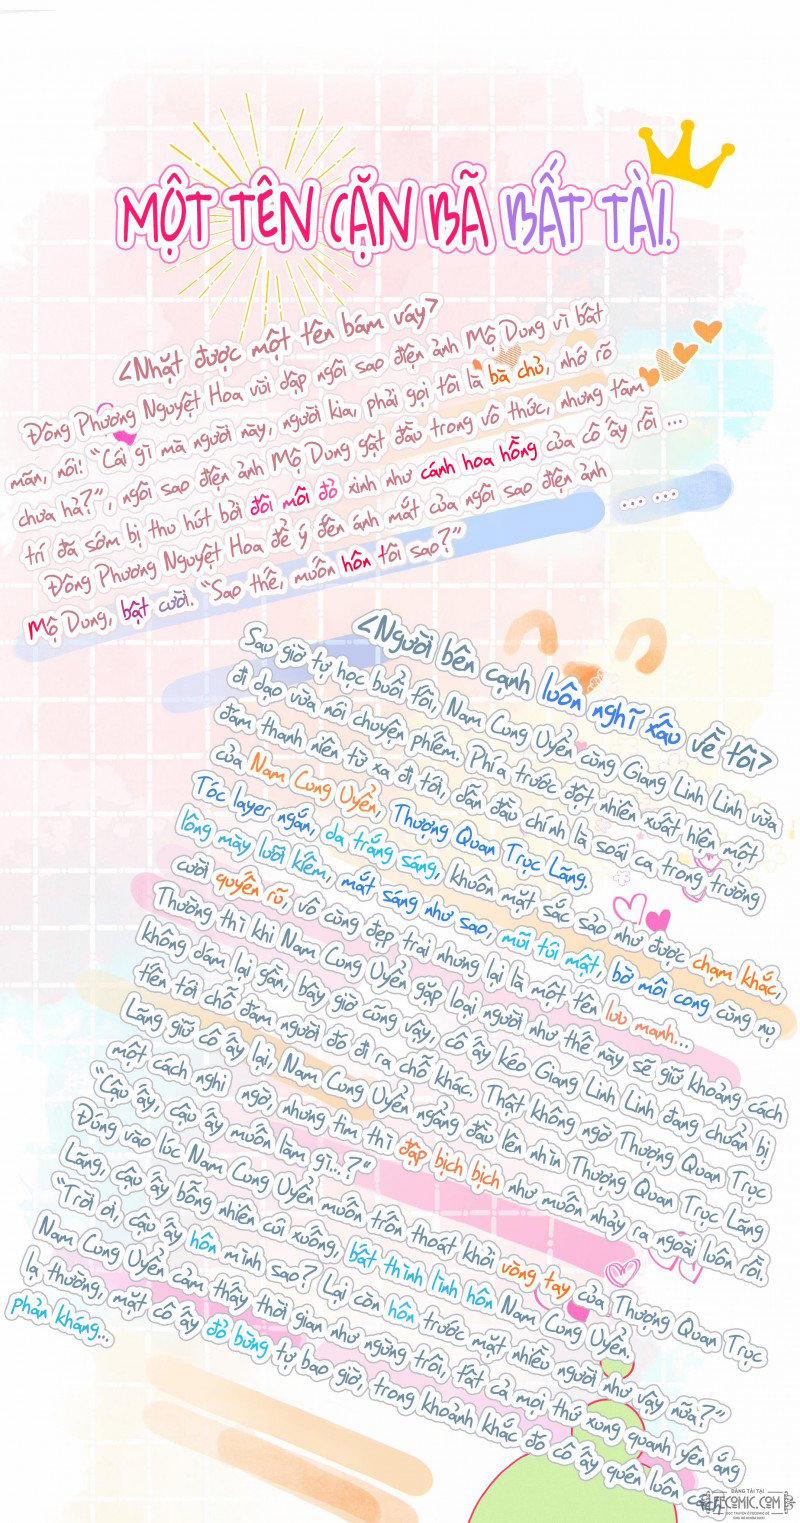 MỘT TÊN CẶN BÃ BẤT TÀI.
<Nhặt được một tên bám váy>
Đông Phương Nguyệt Hoa vùi dập ngôi sao điện ảnh Mộ Dung vì bất
mãn, nói: “Cái gì mà người này, người kia, phải gọi tôi là bà chủ, nhớ rõ
chưa hả?”, ngôi sao điện ảnh Mộ Dung gật đầu trong vô thức, nhưng tâm
trí đã sớm bị thu hút bởi đôi môi đỏ xinh như cánh hoa hồng của cô ấy rồi ...
Đông Phương Nguyệt Hoa để ý đến ánh mắt của ngôi sao điện ảnh ... ...
Mộ Dung, bật cười. “Sao thế, muốn hôn tôi sao?”
<Người bên cạnh luôn nghĩ xấu về tôi>
Sau giờ tự học buổi tối, Nam Cung Uyển cùng Giang Linh Linh vừa
đi dạo vừa nói chuyện phiếm. Phía trước đột nhiên xuất hiện một
đám thanh niên từ xa đi tới, dẫn đầu chính là soái ca trong trường
của Nam Cung Uyển, Thượng Quan Trục Lãng.
Tóc layer ngắn, da trắng sáng, khuôn mặt sắc sảo như được chạm khắc,
lông mày lưỡi kiếm, mắt sáng như sao, mũi túi mật, bờ môi cong cùng nụ
cười quyến rũ, vô cùng đẹp trai nhưng lại là một tên lưu manh...
Thường thì khi Nam Cung Uyển gặp loại người như thế này sẽ giữ khoảng cách
không dám lại gần, bây giờ cũng vậy, cô ấy kéo Giang Linh Linh đang chuẩn bị
tiến tới chỗ đám người đó đi ra chỗ khác. Thật không ngờ Thượng Quan Trục
Lãng giữ cô ấy lại, Nam Cung Uyển ngẩng đầu lên nhìn Thượng Quan Trục Lãng
một cách nghi ngờ, nhưng tim thì đập bịch bịch như muốn nhảy ra ngoài luôn rồi.
“Cậu ấy, cậu ấy muốn làm gì...?”
Đúng vào lúc Nam Cung Uyển muốn trốn thoát khỏi vòng tay của Thượng Quan Trục
Lãng, cậu ấy bỗng nhiên cúi xuống, bất thình lình hôn Nam Cung Uyển.
“Trời ơi, cậu ấy hôn mình sao? Lại còn hôn trước mặt nhiều người như vậy nữa?”
Nam Cung Uyển cảm thấy thời gian như ngừng trôi, tất cả mọi thứ xung quanh yên ắng
lạ thường, mặt cô ấy đỏ bừng tự bao giờ, trong khoảnh khắc đó cô ấy quên luôn cả
phản kháng...
ĐĂNG TẢI TẠI
FECOMIC.COM